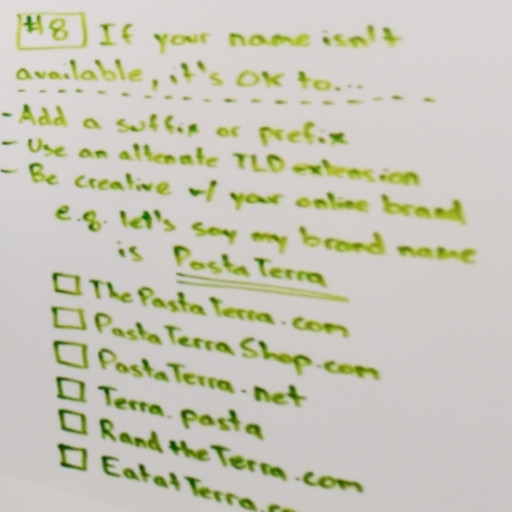 #8 If your name isn't
available, it's OK to...
- Add a suffix or prefix
- Use an alternate TLD extension
- Be creative w/ your online brand
e.g. let's say my brand name
is Pasta Terra
ThePastaTerra.com
PastaTerraShop.com
PastaTerra.net
Terra.pasta
RandtheTerra.com
EatatTerra.co